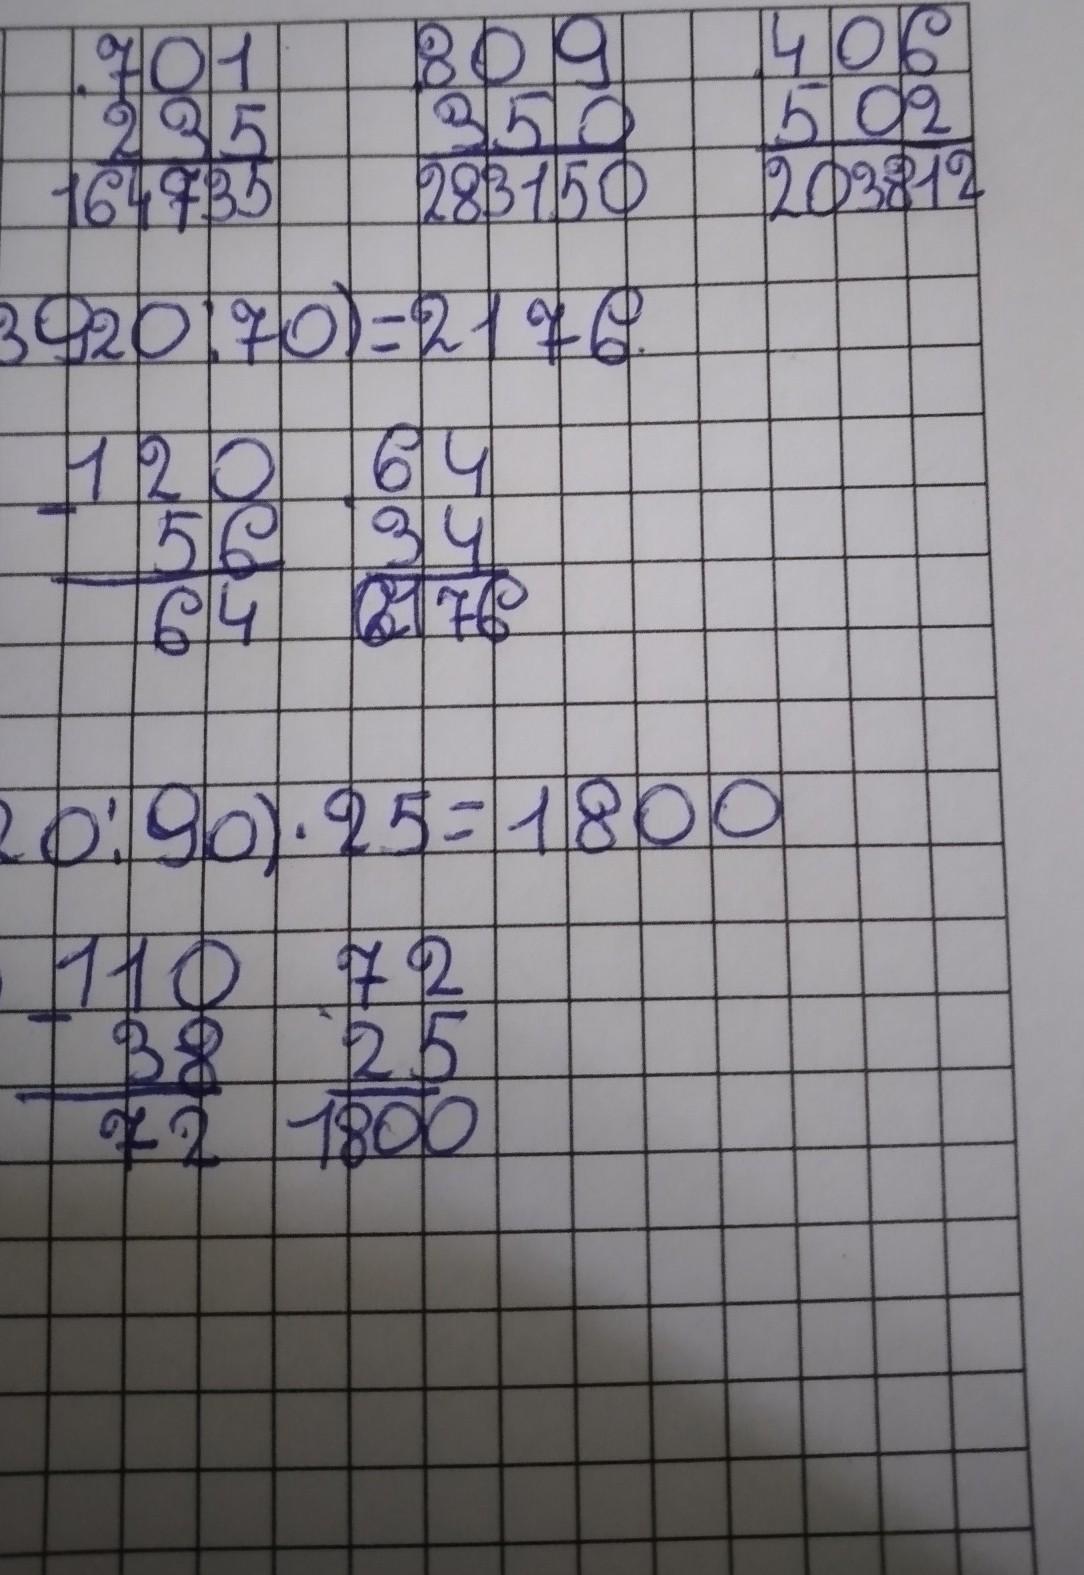 .701 809 .406
235 350 502
164735 283150 203812
3920:70)=2176.
-120 .64
56 34
64 2176
20:90)·25=1800
-110 72
38 25
72 1800